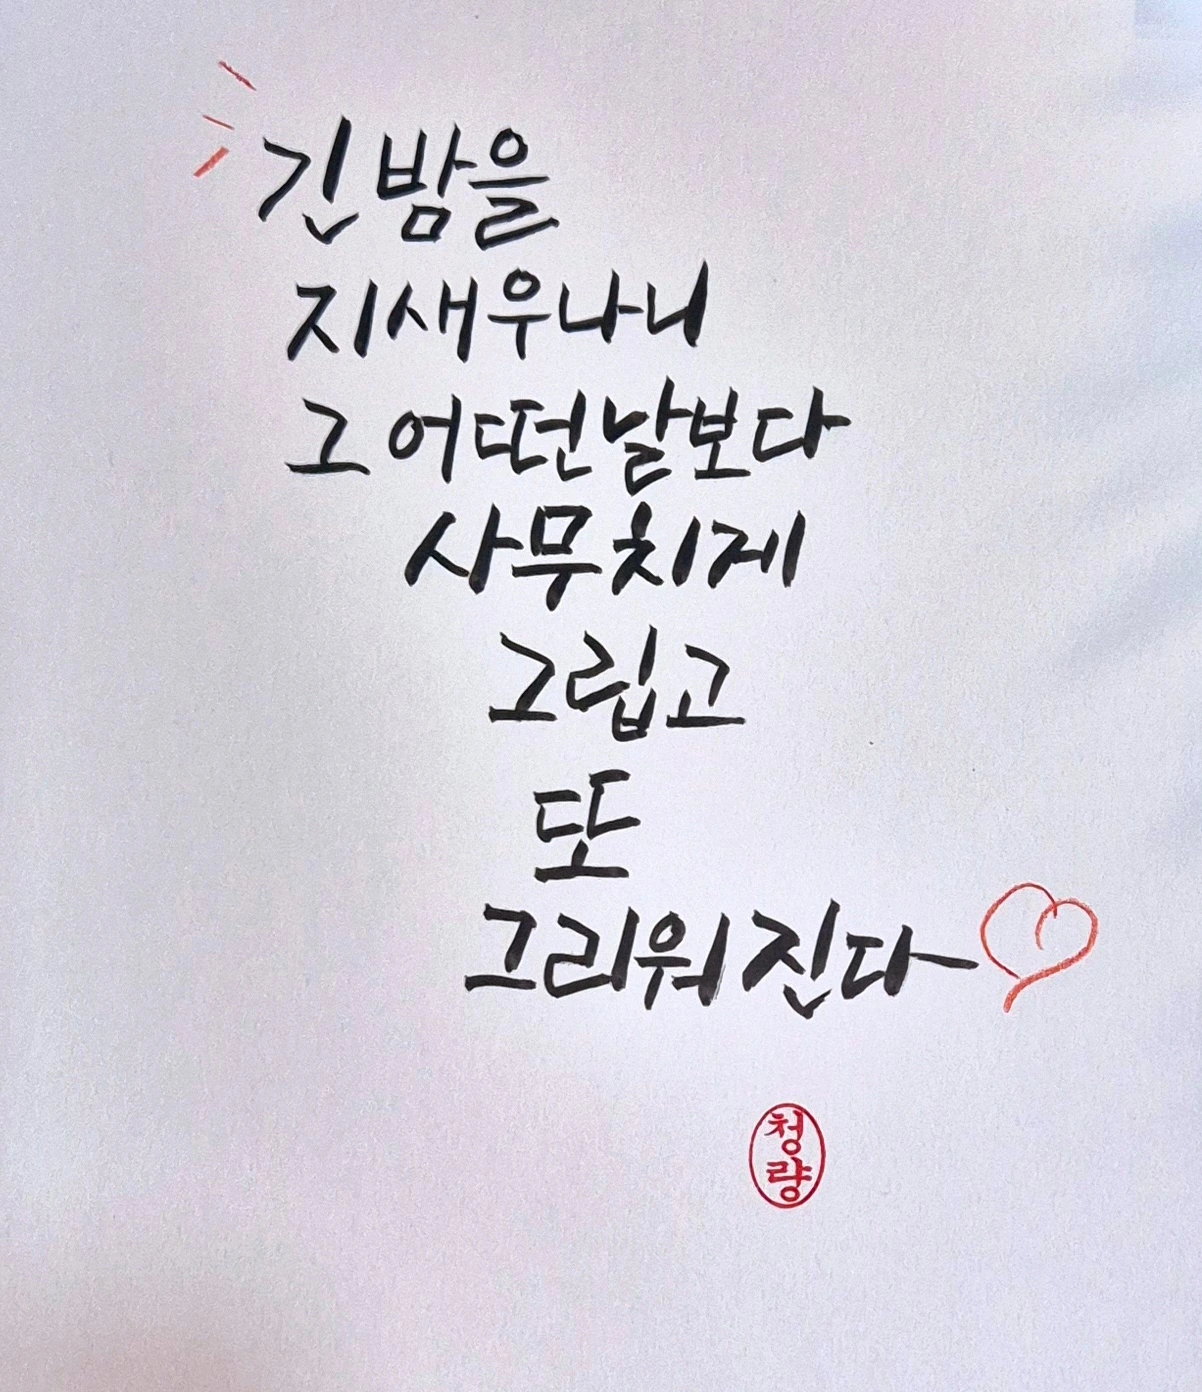 긴 밤을
지새우나니
그 어떤 날보다
사무치게
그립고
또
그리워진다
청량